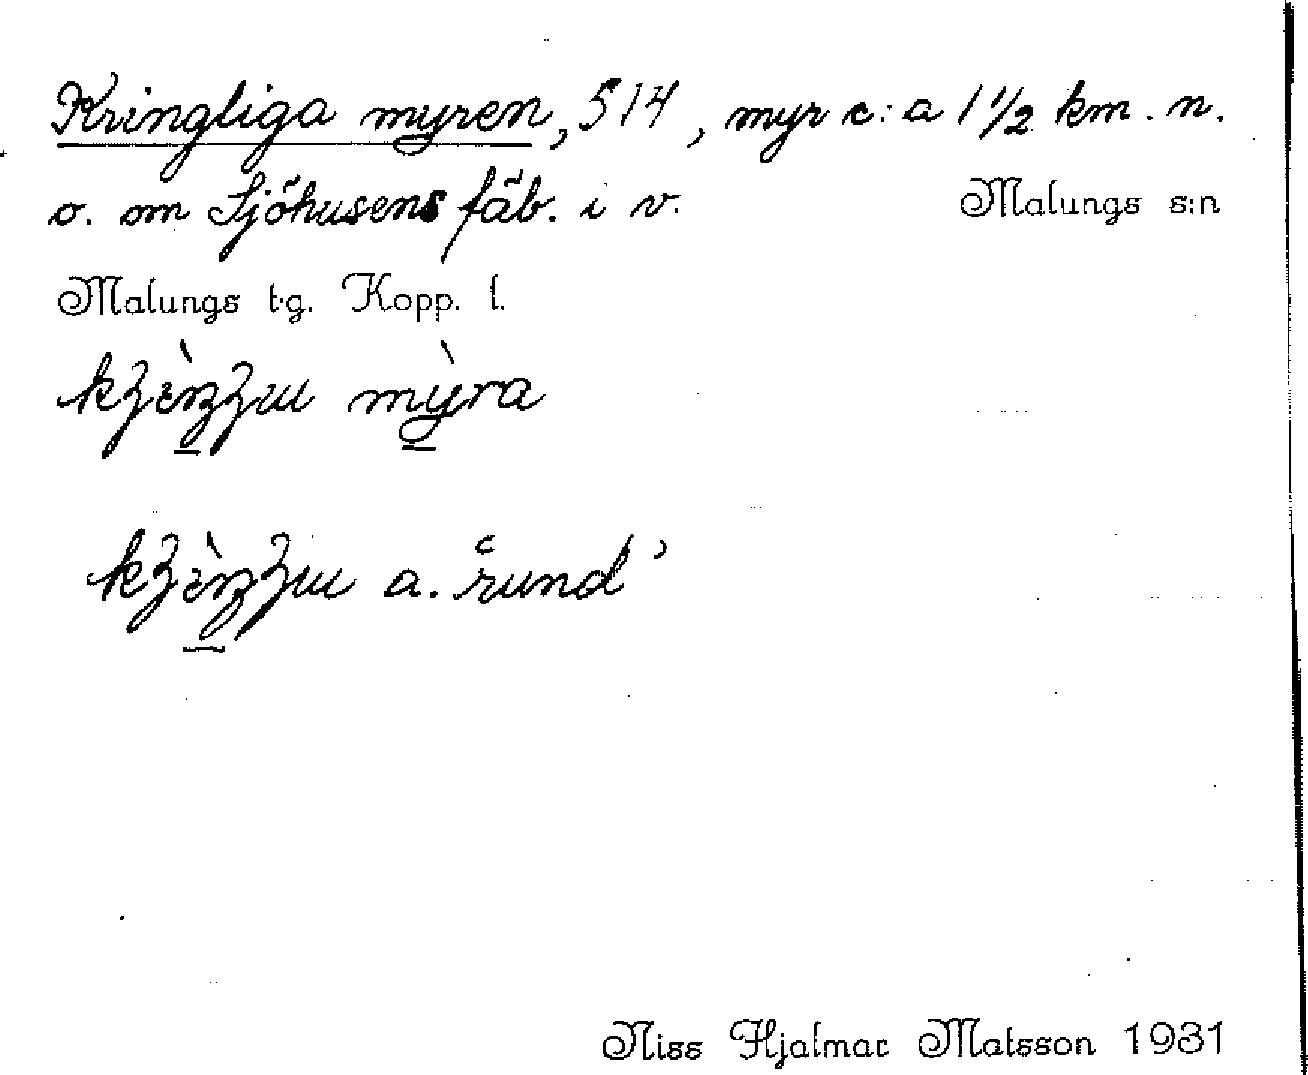 Kringliga myren, 514, myr c:a 1 1/2 km. n.
o. om Sjöhusens fäb. i v. Malungs s:n
Malungs tg. Kopp. l.
myra
a. rund'
Niss Hjalmar Matsson 1931